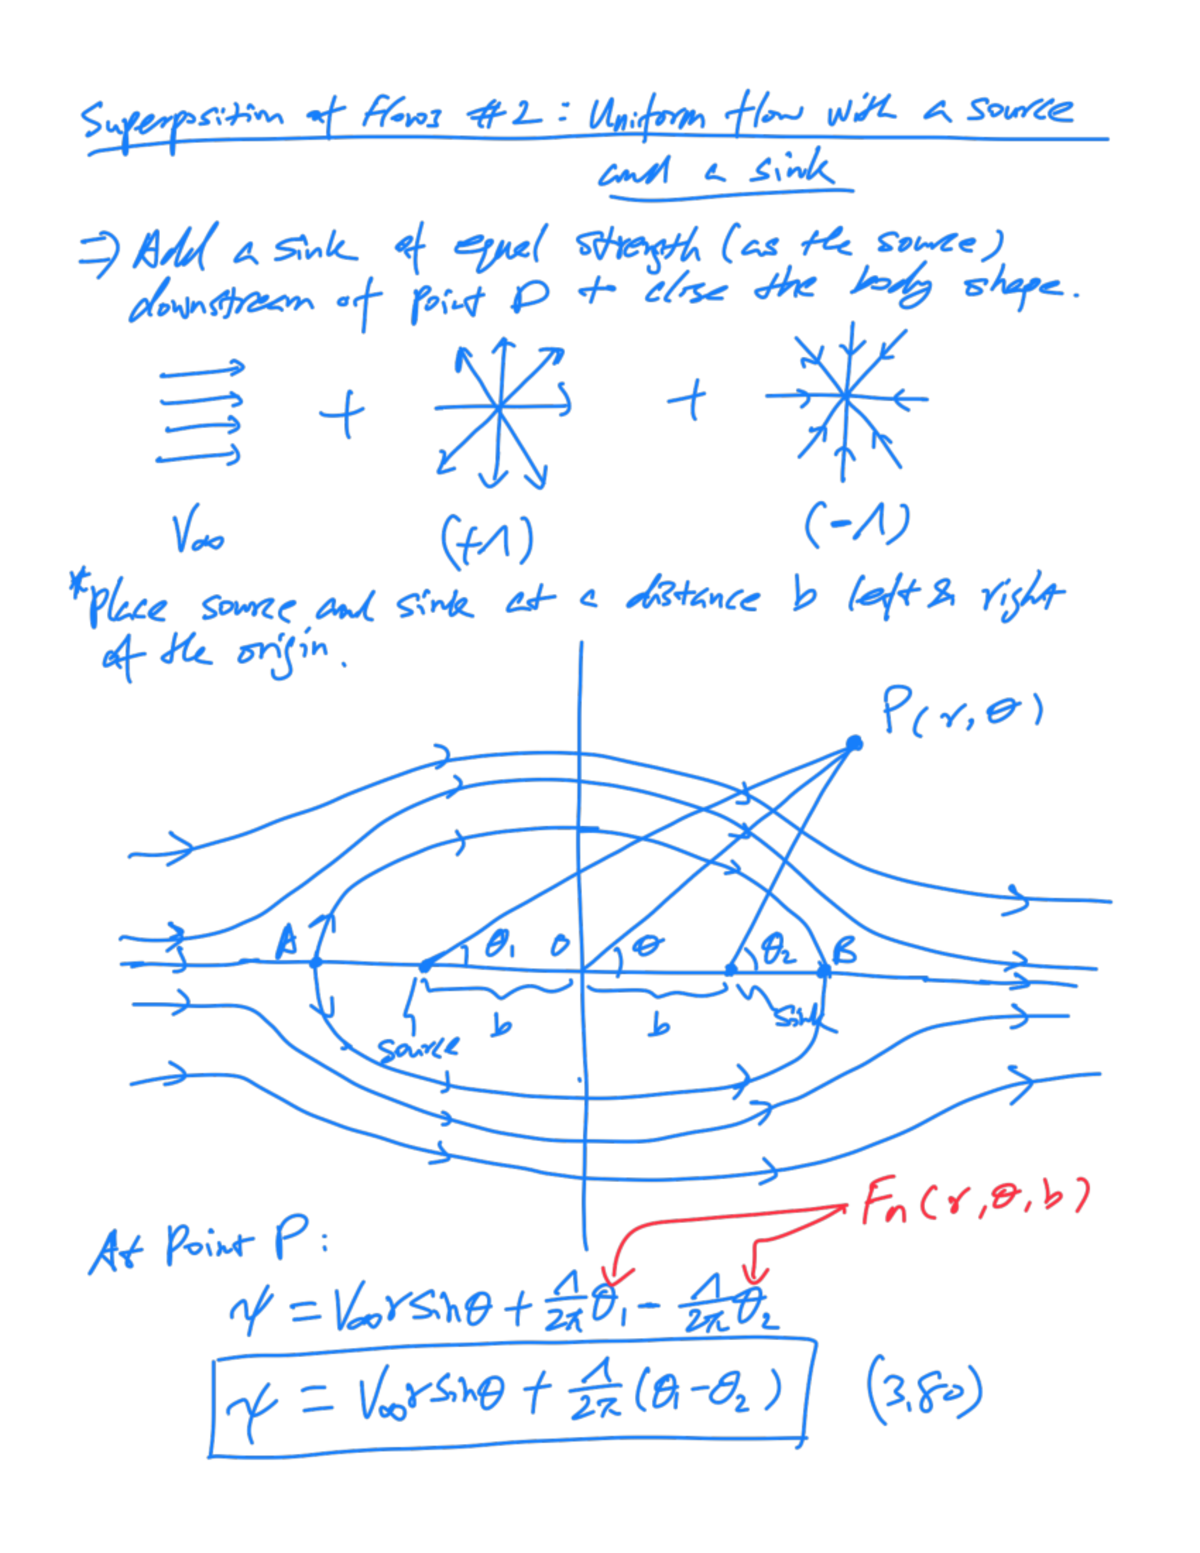 Superposition of flows #2 : Uniform flow with a source
and a sink
⇒ Add a sink of equal strength (as the source)
downstream of point D to close the body shape.
+ +
V∞ (+Λ) (-Λ)
*Place source and sink at a distance b left & right
of the origin.
P(r, θ)
A θ₁ O θ θ₂ B
source b b sink
Fn(r, θ, b)
At Point P:
ψ = V∞ r sinθ + Λ/2π θ₁ - Λ/2π θ₂
ψ = V∞ r sinθ + Λ/2π (θ₁-θ₂) (3.80)